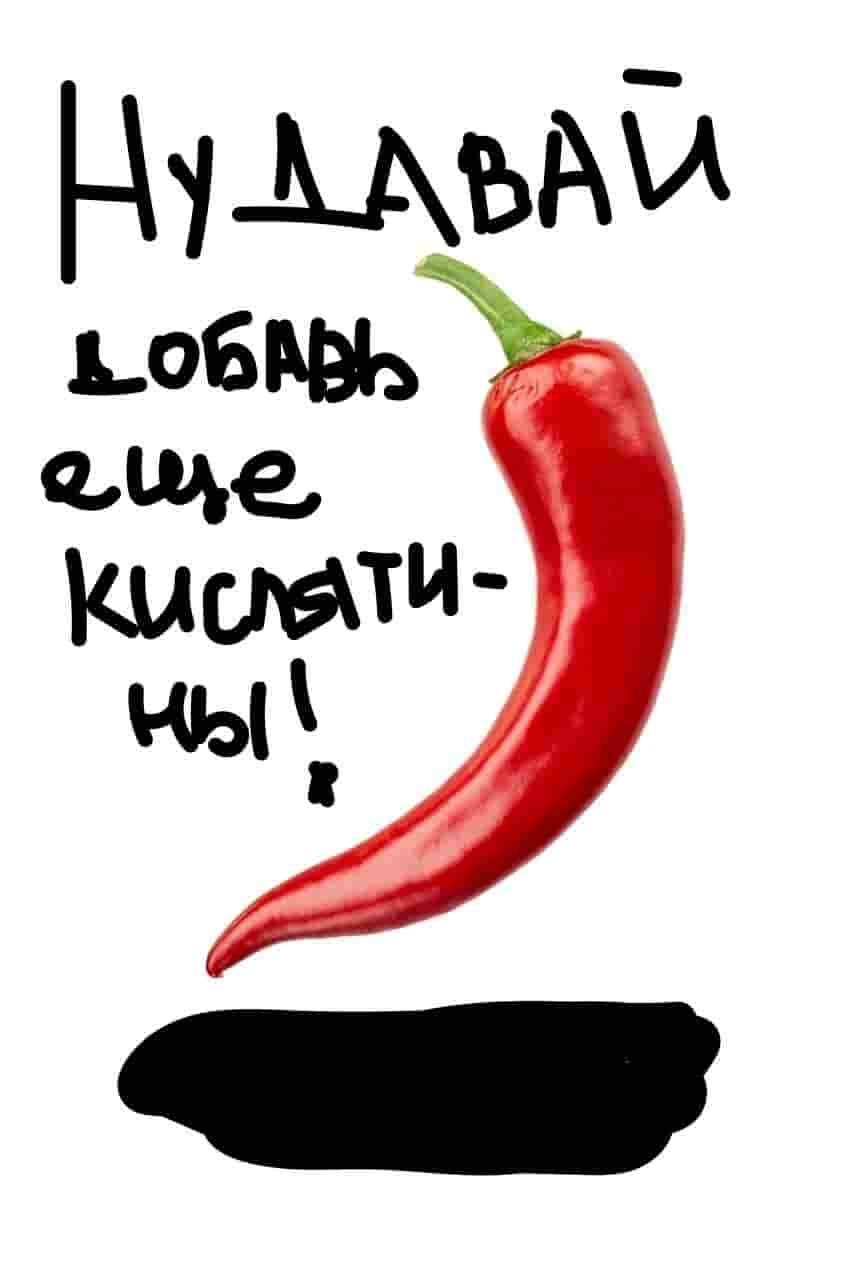 Ну ДАВАЙ
ДОБАВЬ
еще
кисляти-
ны!